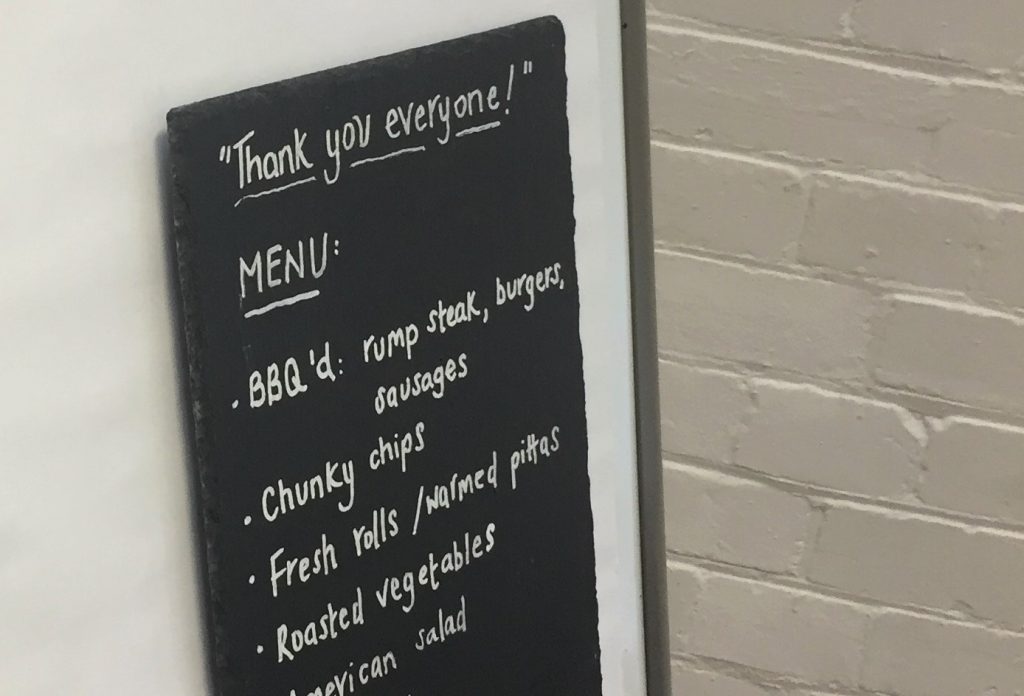 "Thank you everyone!"
MENU:
• BBQ'd: rump steak, burgers,
sausages
• Chunky chips
• Fresh rolls /warmed pittas
• Roasted vegetables
American salad